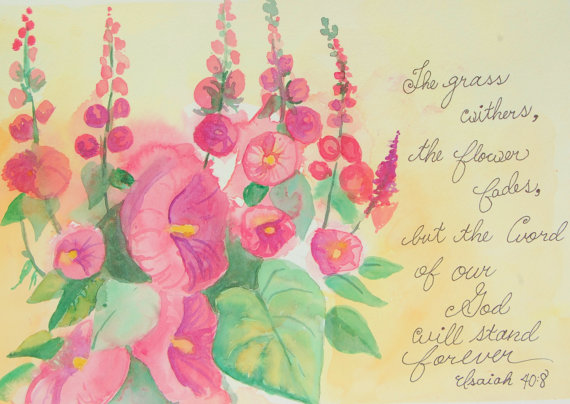 The grass
withers,
the flower
fades,
but the Word
of our
God
will stand
forever
Isaiah 40:8